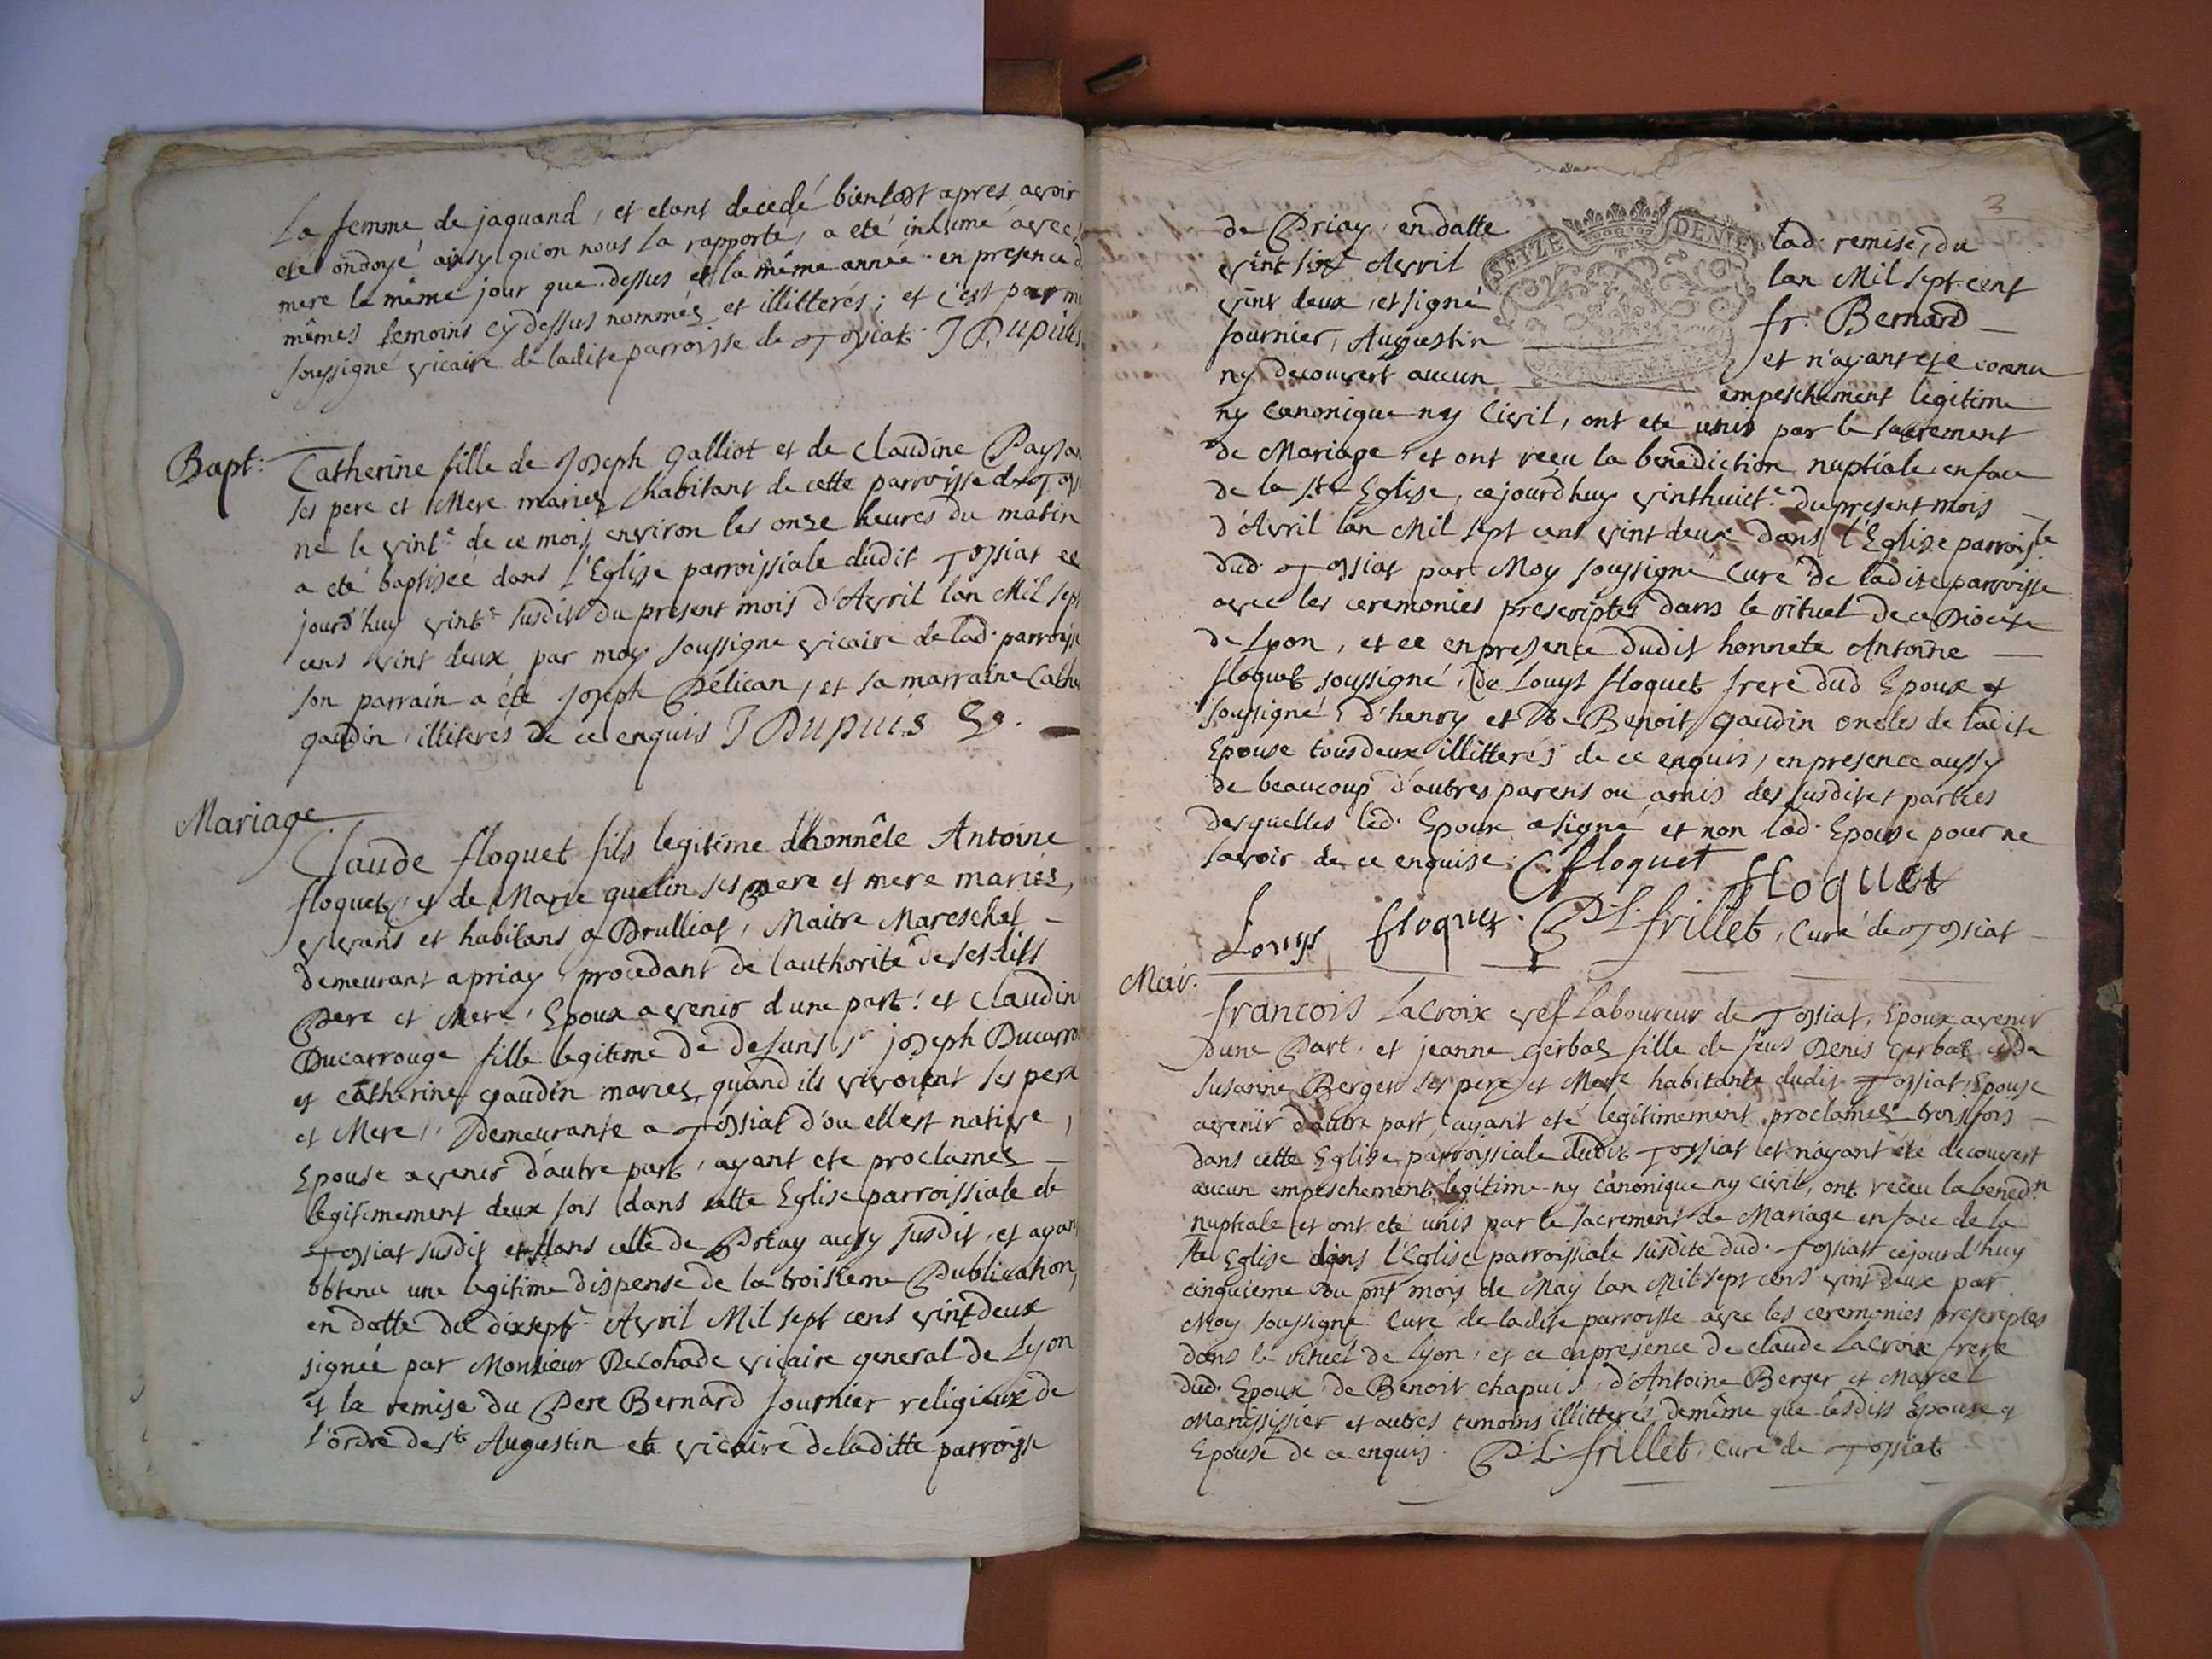 La femme de jaquand, et etant decedé bientost apres avoir
eté ondoyé ainsy qu'on nous la rapporté, a eté inhumé avec
mere le même jour que dessus et la même année en presence d
mêmes temoins cy dessus nommés et illitterés; et c'est par m
soussigné vicaire de ladite parroisse de Tossiat. J Dupuis
Bapt:
Catherine fille de Joseph Galliot et de Claudine Paysan
ses pere et Mere mariez habitant de cette parroisse de Toss
né le vint.e de ce mois environ les onze heures du matin
a eté baptisée dans l'Eglise parroissiale dudit Tossiat ce
jourd'huy vint.e susdit du present mois d'Avril lan Mil sept
cens vint deux par moy soussigne vicaire de lad. parroisse
son parrain a été Joseph Pélican, et sa marraine Cathe
gaudin illiterés de ce enquis J Dupuis
Mariage
Claude floquet fils legitime d'honnête Antoine
floquet, et de Marie quelin ses pere et mere mariés,
vivans et habitans a Drulliat, Maitre Mareschal
demeurant a priay procedant de l'authorité de sesdits
Pere et Mere, Epoux a venir d'une part: et Claudin
Ducarrouge fille legitime de defuns Sr joseph Ducarro
et Catherine gaudin mariez quand ils vivoient ses pere
et Mere, Demeurante a Tossiat d'ou ell'est native,
Epouse a venir d'autre part, ayant eté proclamez
legitimement deux fois dans cette Eglise parroissiale de
Tossiat susdit et dans celle de Priay aussy susdit, et ayan
obtenu une legitime dispense de la troisieme Publication,
en datte du dixsept.e Avril Mil sept cens vint deux
signée par Monsieur Decohade vicaire general de Lyon
et la remise du Pere Bernard fournier religieux de
l'ordre de St Augustin et vicaire de laditte parroisse
3
SEIZE DENIE
de Priay, en datte lad. remise, du
vint Avril lan Mil sept cent
vint deux, et signé fr. Bernard
fournier, Augustin et n'ayant eté connu
ny decouvert aucun empeschement legitime
ny canonique ny Civil, ont eté unis par le sacrement
de Mariage, et ont reçu la benediction nuptiale en face
de la Ste Eglise, cejourdhuy vinthuict.e du present mois
d'Avril lan Mil sept cens vint deux Dans l'Eglise parroissle
dud. Tossiat par Moy soussigné Curé de ladite parroisse
avec les ceremonies prescriptes dans le rituel de ce Diocese
de Lyon, et ce en presence dudit honnete Antoine
floquet soussigné, de Louys floquet frere dud Epoux et
soussigné, d'henry et de Benoit gaudin oncles de ladite
Epouse tous deux illitterés de ce enquis, en presence aussy
de beaucoup d'autres parens ou amis des susdites parties
desquelles led. Epoux a signé et non lad. Epouse pour ne
savoir de ce enquise. C floquet floquet
Louys floquet. P. L. frillet, Curé de Tossiat
Mar.
francois Lacroix vef Laboureur de Tossiat, Epoux avenir
d'une Part. et jeanne gerbaz fille de feus Denis gerbaz et de
Susanne Berger ses pere et Mere habitante dudit Tossiat, Epouse
avenir d'autre part, ayant eté legitimement proclamez trois fois
dans cette Eglise parroissiale dudit Tossiat et n'ayant eté decouvert
aucun empeschement legitime ny canonique ny civil, ont receu la bened.n
nuptiale et ont eté unis par le sacrement de Mariage en face de la
Ste Eglise dans l'Eglise parroissiale susdite dud. Tossiat cejourd'huy
cinquieme du pnt mois de May lan Mil sept cens vint deux par
Moy soussigné Curé de ladite parroisse avec les ceremonies prescriptes
dans le Rituel de Lyon, et ce en presence de claude Lacroix frere
dud. Epoux de Benoit chapuis, d'Antoine Berger et Marcel
Manississier et autres temoins illitterés, de même que lesdits Epoux et
Epouse de ce enquis. P. L. frillet, Curé de Tossiat